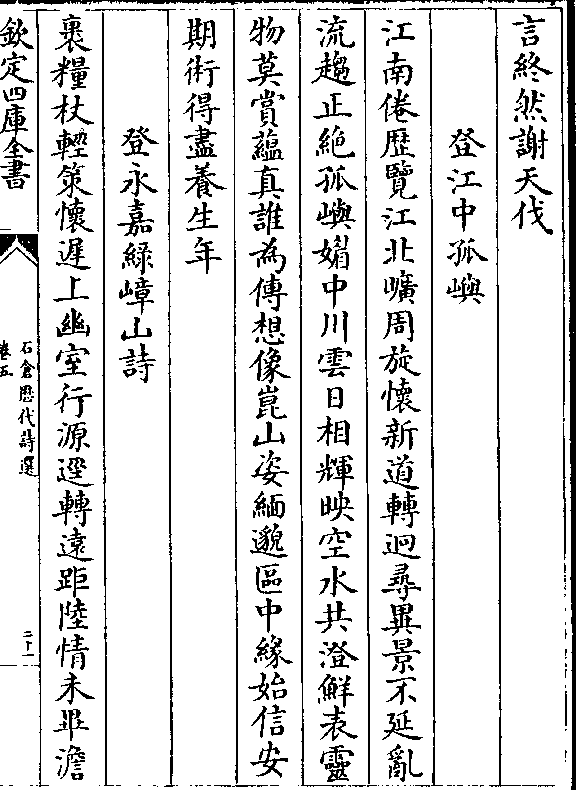 言終然謝天伐
登江中孤嶼
江南倦歴覽江北曠周旋懷新道轉迥尋異景不延亂
流趨正絶孤嶼媚中川雲日相輝映空水共澄鮮表靈
物莫賞蘊真誰為傳想像崑山姿緬邈區中緣始信安
期術得盡養生年
登永嘉緑嶂山詩
裹糧杖輕策懷遲上幽室行源逕轉遠距陸情未畢澹
欽定四庫全書
石倉歴代詩選
卷五
二十一